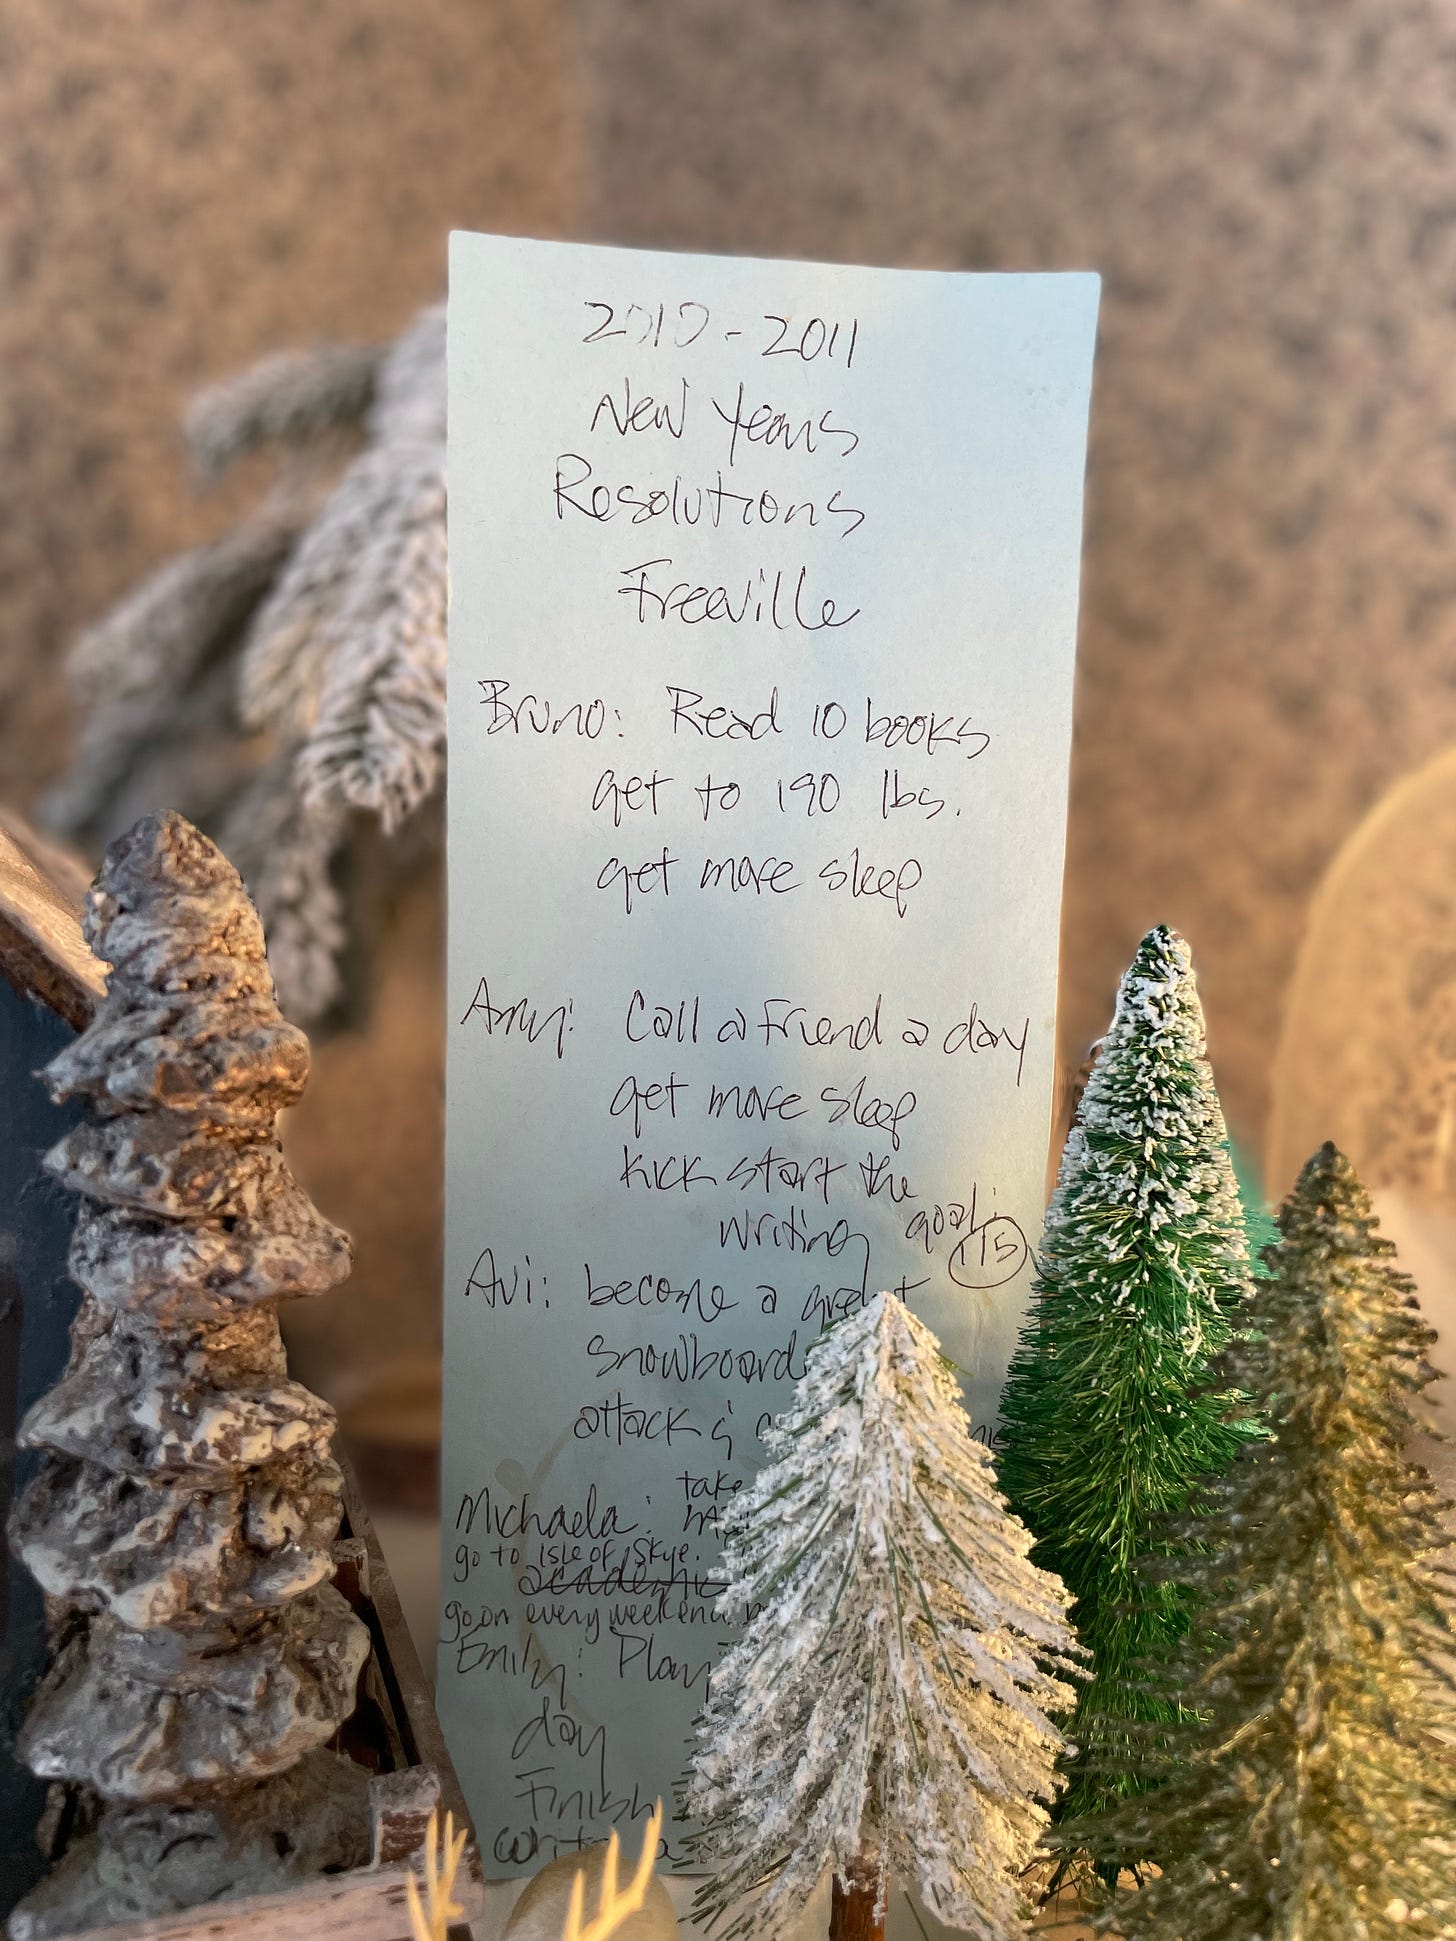 2010 - 2011
New Years
Resolutions
Freeville
Bruno: Read 10 books
get to 190 lbs.
get more sleep
Amy: Call a friend a day
get more sleep
kick start the
writing goal:
115
Avi: become a great
snowboard
attack &
Michaela: take
go to Isle of Skye.
academic
go on every weekend
Emily: Play
day
Finish
write a